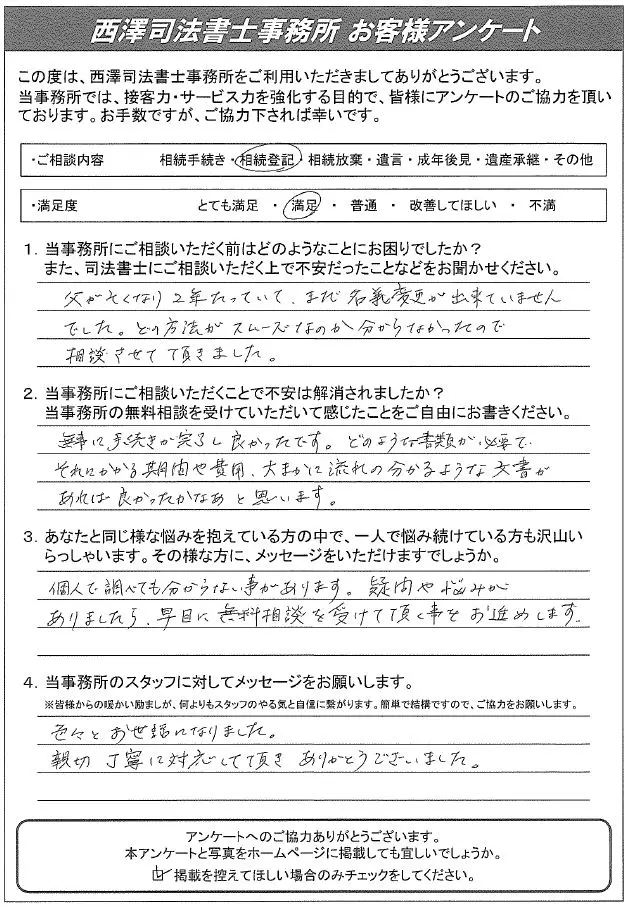 西澤司法書士事務所 お客様アンケート
この度は、西澤司法書士事務所をご利用いただきましてありがとうございます。
当事務所では、接客力・サービス力を強化する目的で、皆様にアンケートのご協力を頂い
ております。お手数ですが、ご協力下されば幸いです。
・ご相談内容 相続手続き・相続登記・相続放棄・遺言・成年後見・遺産承継・その他
・満足度 とても満足 ・ 満足 ・ 普通 ・ 改善してほしい ・ 不満
1. 当事務所にご相談いただく前はどのようなことにお困りでしたか?
また、司法書士にご相談いただく上で不安だったことなどをお聞かせください。
父が亡くなり2年たっていて、まだ名義変更が出来ていません
でした。どの方法がスムーズなのか分からなかったので
相談させて頂きました。
2. 当事務所にご相談いただくことで不安は解消されましたか?
当事務所の無料相談を受けていただいて感じたことをご自由にお書きください。
無事に手続きが完了し良かったです。どのような書類が必要で
それにかかる期間や費用、大まかに流れの分かるような文書が
あれば良かったかなあと思います。
3. あなたと同じ様な悩みを抱えている方の中で、一人で悩み続けている方も沢山い
らっしゃいます。その様な方に、メッセージをいただけますでしょうか。
個人で調べても分からない事があります。疑問や悩みが
ありましたら、早目に無料相談を受けて頂く事をお進めします。
4. 当事務所のスタッフに対してメッセージをお願いします。
※皆様からの暖かい励ましが、何よりもスタッフのやる気と自信に繋がります。簡単で結構ですので、ご協力をお願いします。
色々とお世話になりました。
親切丁寧に対応して頂きありがとうございました。
アンケートへのご協力ありがとうございます。
本アンケートと写真をホームページに掲載しても宜しいでしょうか。
掲載を控えてほしい場合のみチェックをしてください。